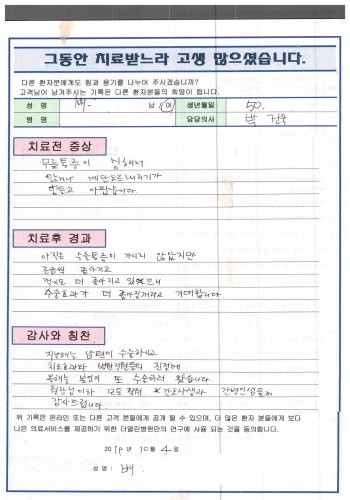 그동안 치료받느라 고생 많으셨습니다.
다른 환자분에게도 힘과 용기를 나누어 주시겠습니까?
고객님이 남겨주시는 기록은 다른 환자분들의 희망이 됩니다.
성 명 남 여 생년월일 50.
병 명 담당의사 박
치료전 증상
무릎통증이 심해서
앉거나 계단오르내리기가
힘들고 아팠습니다.
치료후 경과
아직은 수술통증이 가시지 않았지만
조금씩 좋아지고
걷기도 더 좋아지고 있으니
수술효과가 더 좋아질거라고 기대합니다
감사와 칭찬
지난해는 남편이 수술하시고
치료효과와 병원직원들의 친절에
올해는 본인이 또 수술하러 왔습니다.
원장님이하 모든 직원 간호사샘과
감사드립니다.
위 기록은 온라인 또는 다른 고객 분들에게 공개 될 수 있으며, 더 많은 환자 분들에게 보다
나은 의료서비스를 제공하기 위한 더열린병원만의 연구에 사용 되는 것을 동의합니다.
2019년 10월 4일
성 명 :